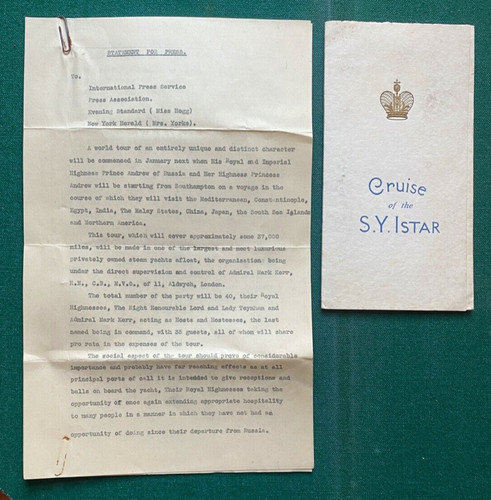 STATEMENT FOR PRESS.
To.
International Press Service
Press Association.
Evening Standard ( Miss Hogg)
New York Herald ( Mrs. Yorke).
A world tour of an entirely unique and distinct character
will be commenced in January next when His Royal and Emperial
Highness Prince Andrew of Russia and Her Highness Princess
Andrew will be starting from Southampton on a voyage in the
course of which they will visit the Mediterranean, Constantinople,
Egypt, India, The Malay States, China, Japan, the South Sea Islands
and Northern America.
This tour, which will cover approximately some 37,000
miles, will be made in one of the largest and most luxurious
privately owned steam yachts afloat, the organisation being
under the direct supervision and control of Admiral Mark Kerr,
R.N., C.B., M.V.O., of 11, Aldwych, London.
The total number of the party will be 45, their Royal
Highnesses, The Right Honourable Lord and Lady Teynham and
Admiral Mark Kerr, acting as Hosts and Hostesses, the last
named being in command, with guests, all of whom will share
pro rata in the expenses of the tour.
The social aspect of the tour should prove of considerable
importance and probably have far reaching effects as at all
principal ports of call it is intended to give receptions and
balls on board the yacht, Their Royal Highnesses taking the
opportunity of once again extending appropriate hospitality
to many people in a manner in which they have not had an
opportunity of doing since their departure from Russia.
Cruise
of the
S.Y. ISTAR